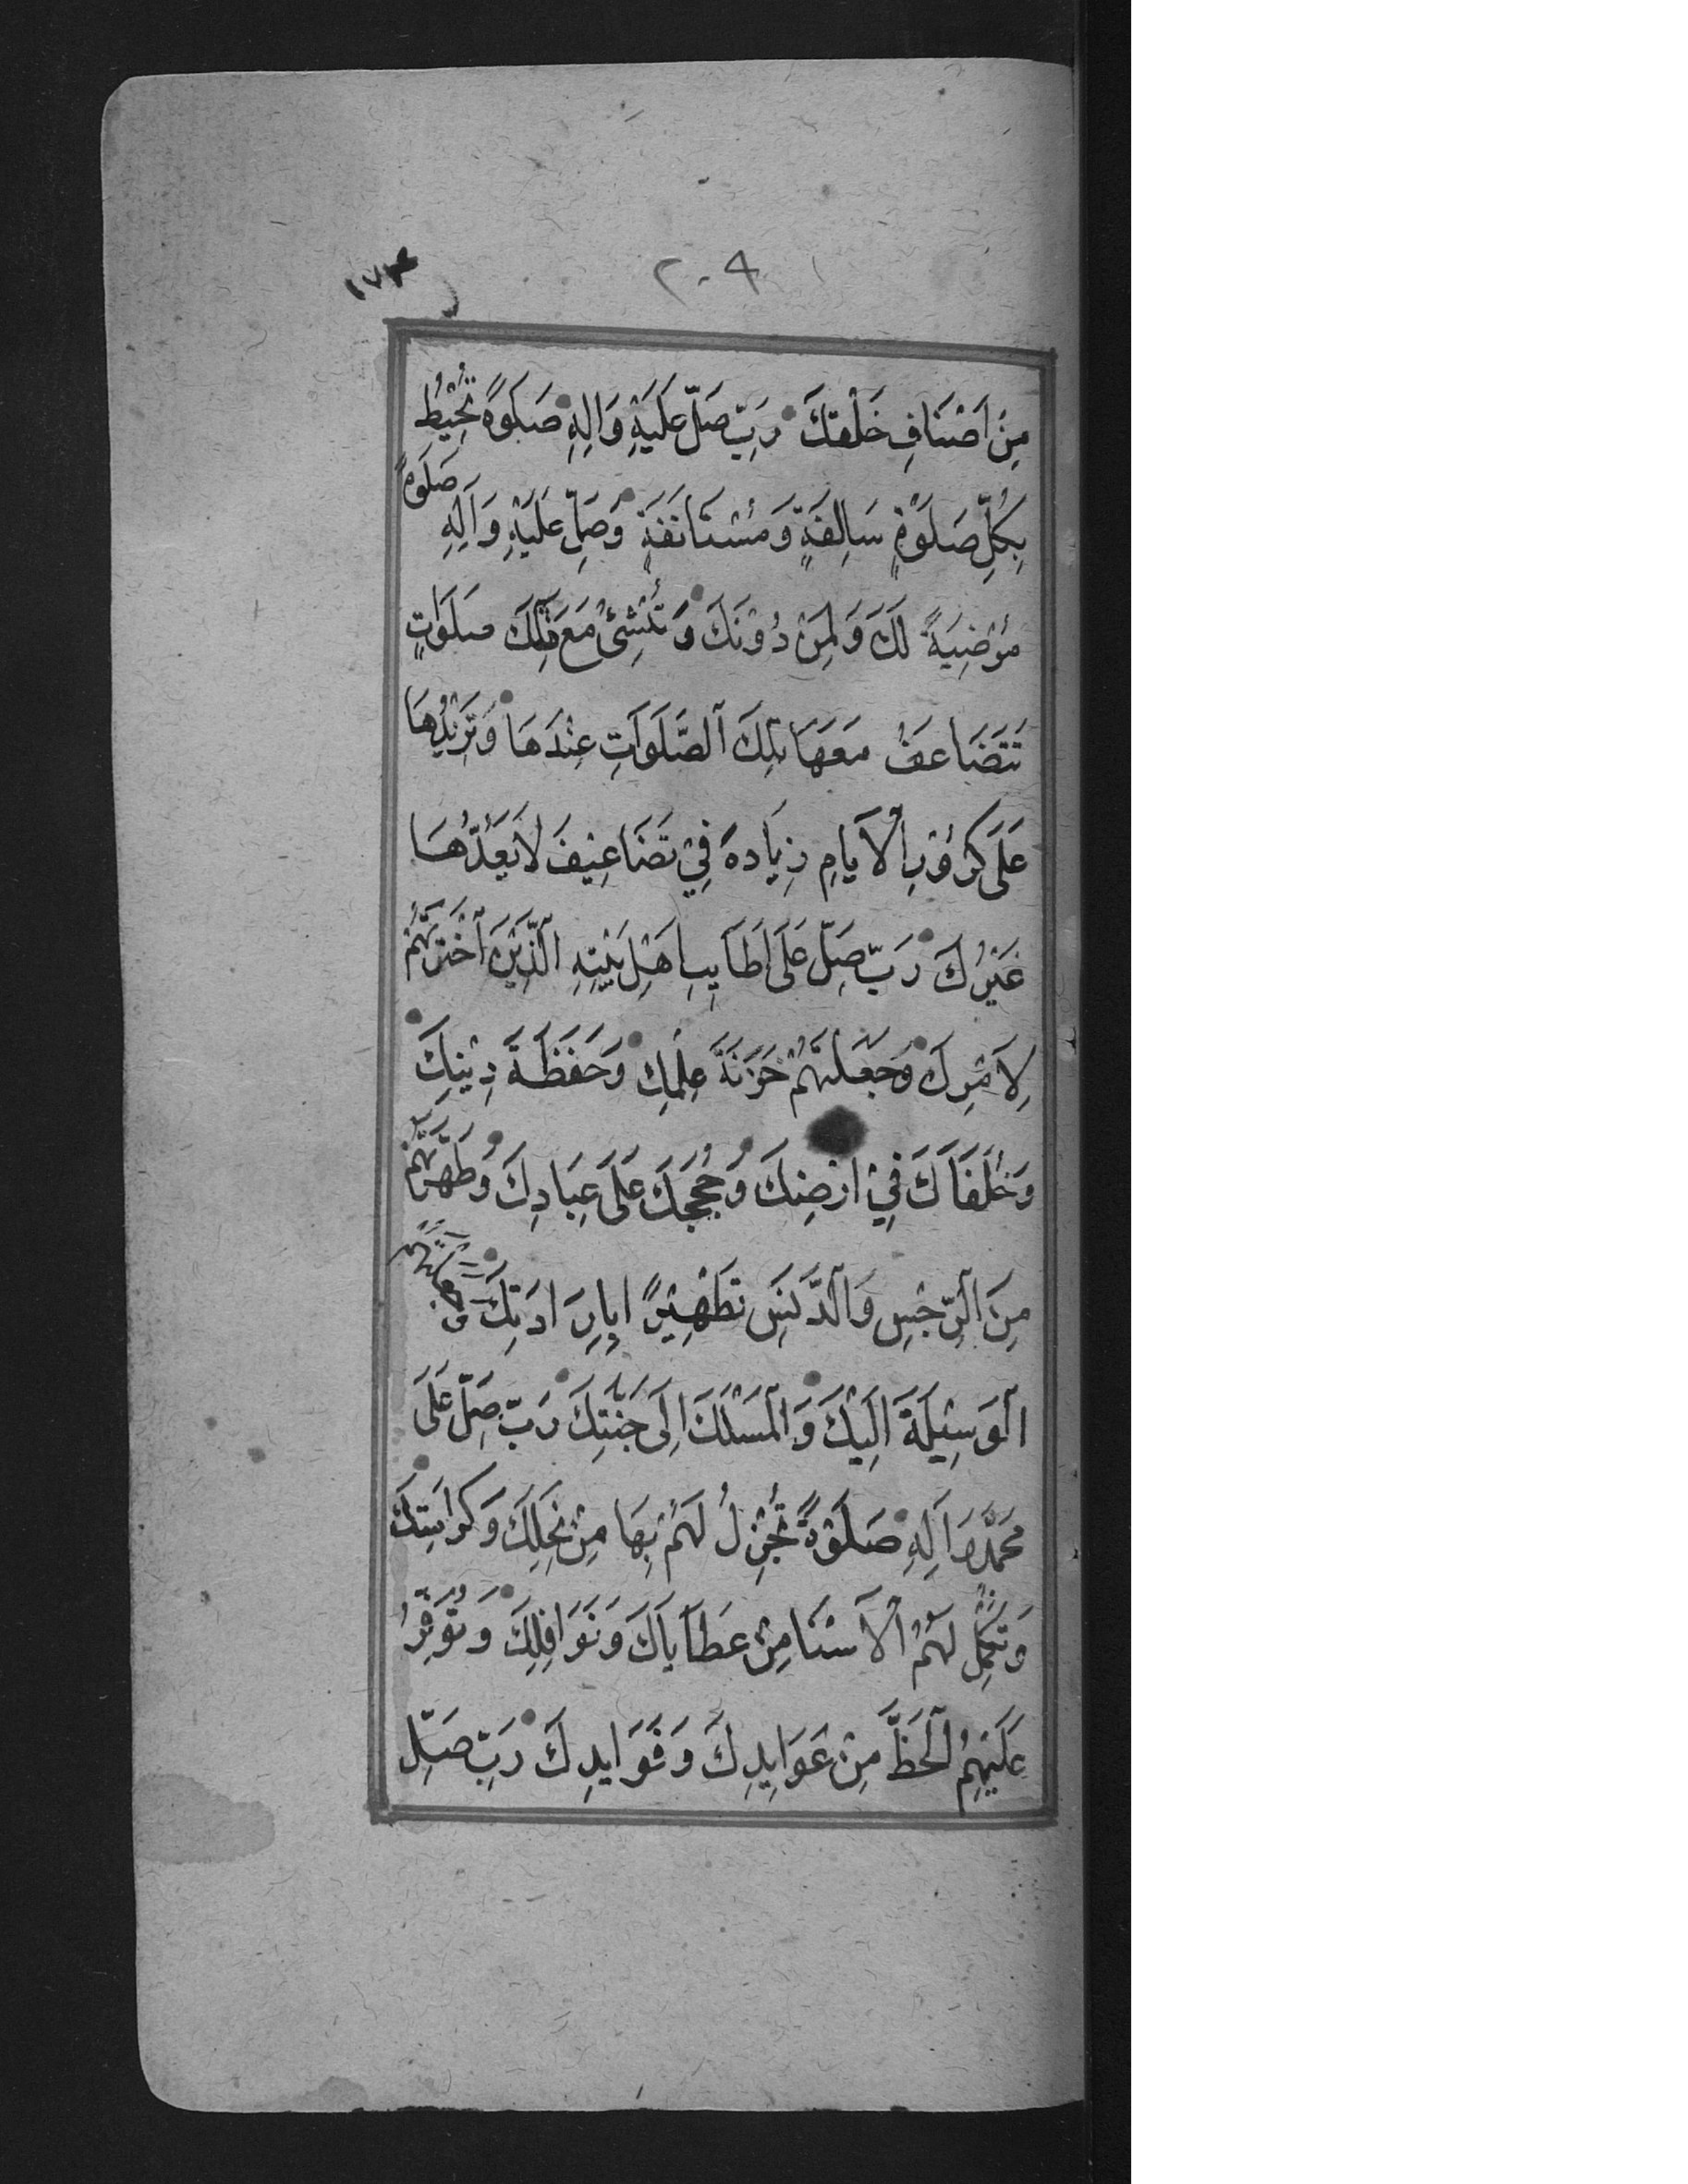 ٢٠٩
مِنْ اَصْنَافِ خَلْقِكَ رَبِّ صَلِّ عَلَيْهِ وَالِهِ صَلَوةً تُحِيْطُ
بِكُلِّ صَلَوْةٍ سَالِفَةٍ وَمُسْتَانَفَةٍ وَصَلِّ عَلَيْهِ وَآلِهِ صَلَوةً
مَرْضِيَةً لَكَ وَلِمَنْ دُوْنَكَ وَتُنْشِئُ مَعَ ذٰلِكَ صَلَوَاتٍ
تَتَضَاعَفُ مَعَهَا تِلْكَ الصَّلَوَاتِ عِنْدَهَا وَتَزِيْدُهَا
عَلَى كُرُوْرِ الْاَيَامِ زِيَادَةً فِيْ تَضَاعِيْفَ لَا يَعُدُّهَا
غَيْرُكَ رَبِّ صَلِّ عَلَى اَطَايِبِ اَهْلِ بَيْتِهِ الَّذِيْنَ اَخْتَرْتَهُمْ
لِاَمْرِكَ وَجَعَلْتَهُمْ خَزَنَةَ عِلْمِكَ وَحَفَظَةَ دِيْنِكَ
وَخُلَفَآكَ فِيْ اَرْضِكَ وَحُجَجَكَ عَلَى عِبَادِكَ وَطَهَّرْتَهُمْ
مِنَ الرِّجْسِ وَالدَّنَسِ تَطْهِيْرًا بِاِرَادَتِكَ وَجَعَلْتَهُمْ
الْوَسِيْلَةَ اِلَيْكَ وَالْمَسْلَكَ اِلَى جَنَّتِكَ رَبِّ صَلِّ عَلَى
مُحَمَّدٍ وَآلِهِ صَلَوْةً تُجْزِلُ لَهُمْ بِهَا مِنْ نِحَلِكَ وَكَرَامَتِكَ
وَتُكْمِلُ لَهُمُ الْاَسْنَا مِنْ عَطَايَاكَ وَنَوَافِلِكَ وَتُوَفِّرُ
عَلَيْهِمُ الْحَظَّ مِنْ عَوَايِدِكَ وَفَوَايِدِكَ رَبِّ صَلِّ